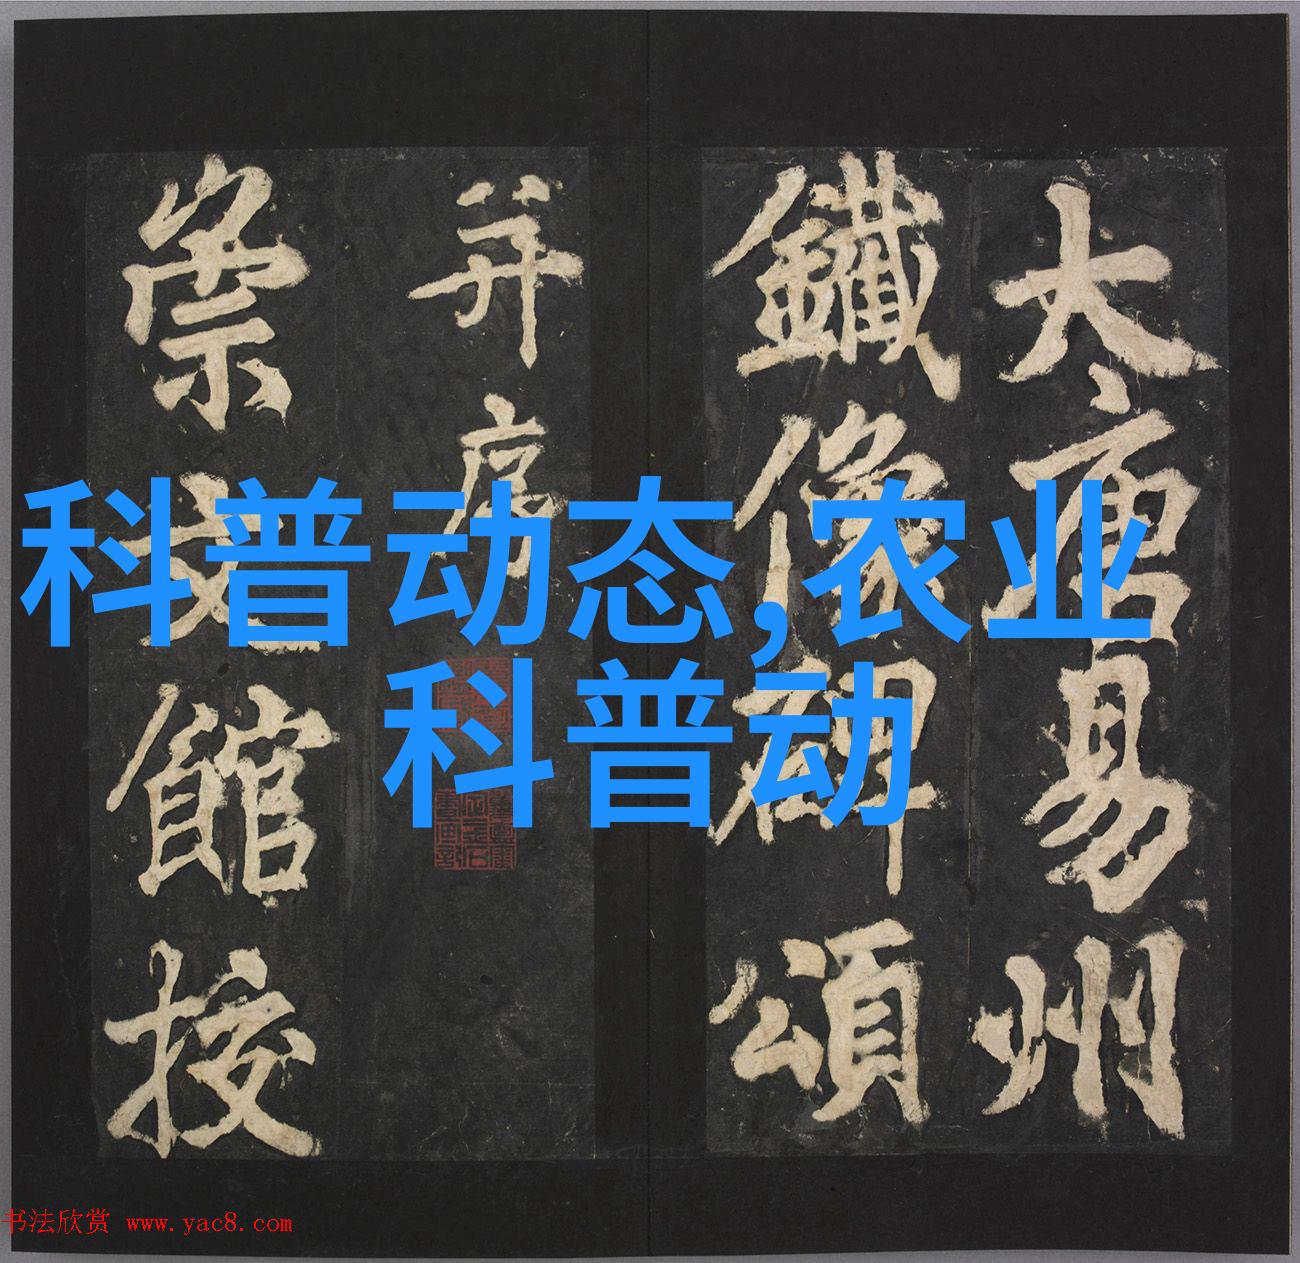 大唐易州
鐵像碑頌
并序
崇文館校
科普动态,农业
科普动
书法欣赏 www.yac8.com